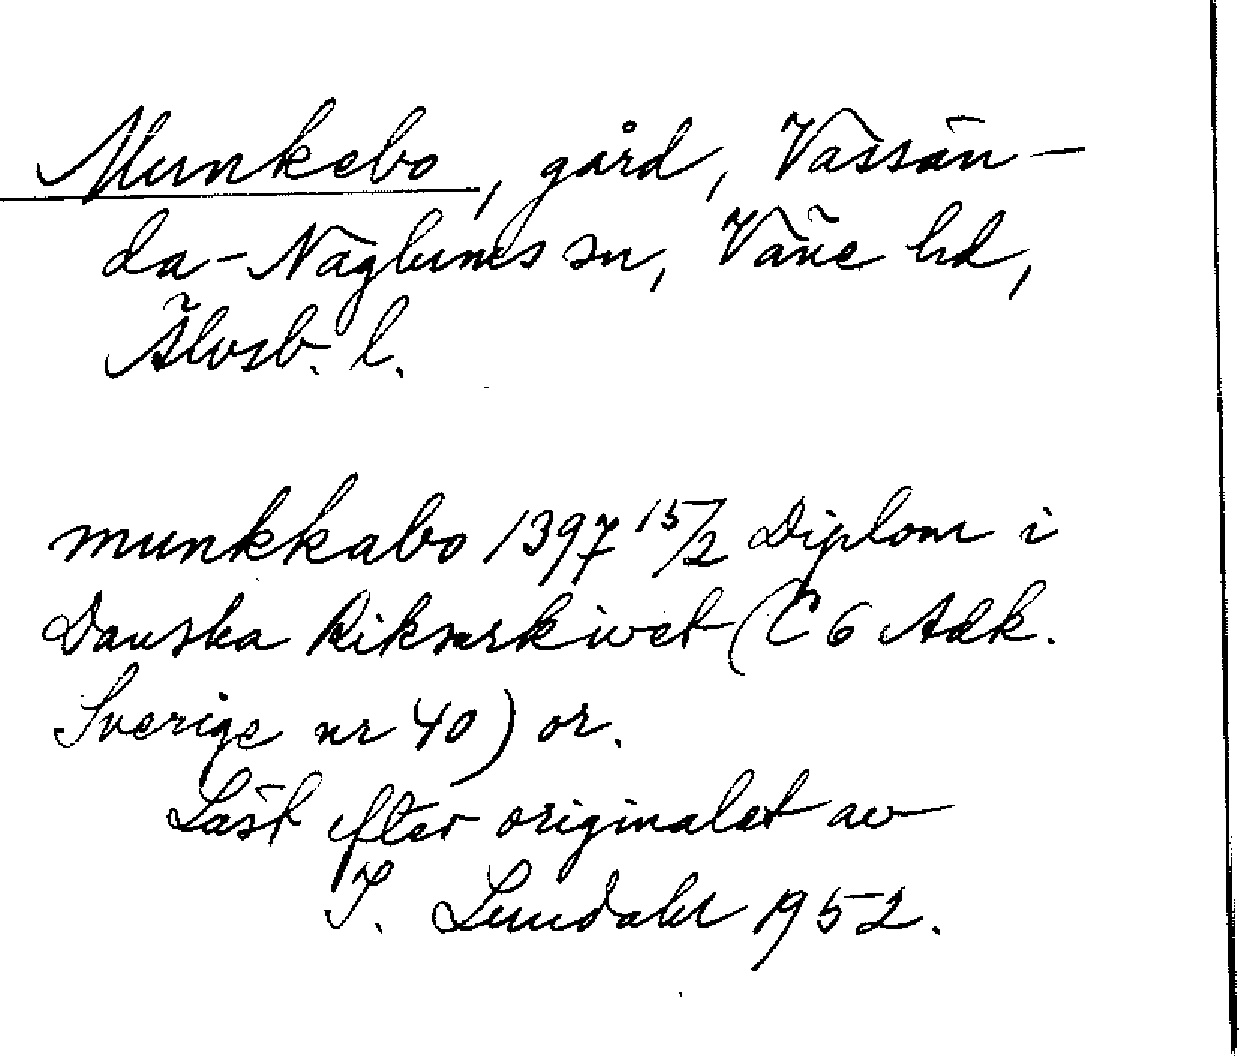 Munkebo, gård, Vassän-
da-Naglums sn, Väne hd,
Älvsb. l.
munkkabo 1397 15/2 Diplom i
Danska Riksarkivet (C 6 Adk.
Sverige nr 40) or.
Läst efter originalet av
I. Lundahl 1952.